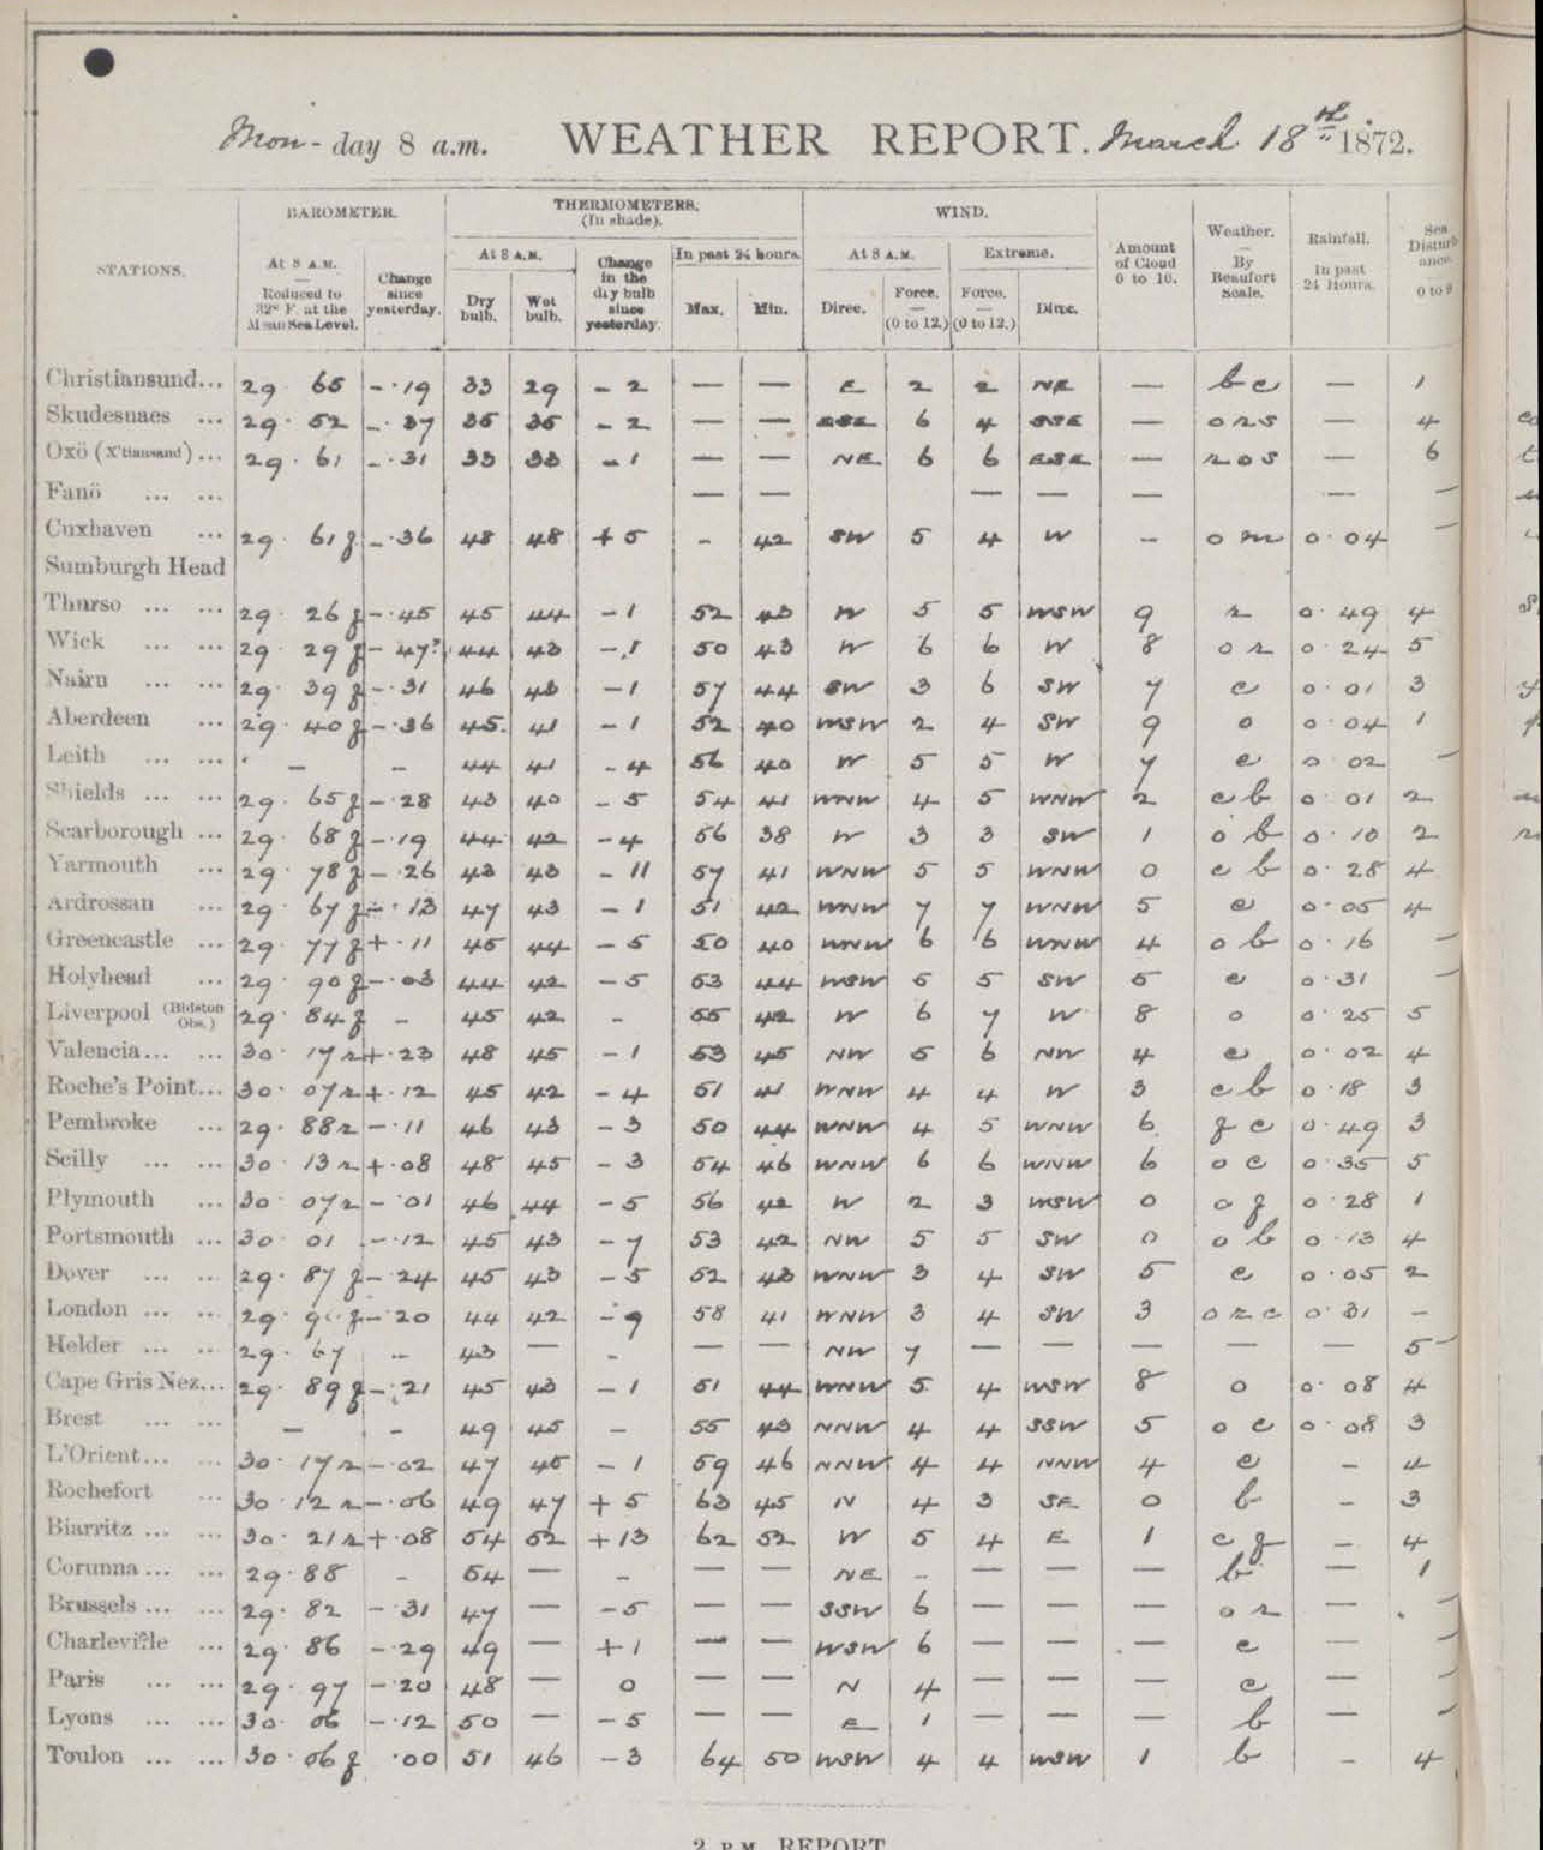 Mon-day 8 a.m. WEATHER REPORT. March 18th 1872.
BAROMETER. THERMOMETERS. (In shade). WIND.
STATIONS. At 8 A.M. Reduced to 32° F. at the Mean Sea Level. Change since yesterday. At 8 A.M. Dry bulb. Wet bulb. Change in the dry bulb since yesterday. In past 24 hours. Max. Min. At 8 A.M. Direc. Force. (0 to 12.) Extreme. Force. (0 to 12.) Direc. Amount of Cloud 0 to 10. Weather. By Beaufort scale. Rainfall. In past 24 Hours. Sea Disturbance. 0 to 9
Christiansund... 29 65 -.19 33 29 -2 — — E 2 2 NE — bc — 1
Skudesnaes ... 29.52 -.37 35 35 -2 — — ESE 6 4 SSE — ors — 4
Oxö (X'tiansand)... 29.61 -.31 33 33 -1 — — NE 6 6 ESE — ros — 6
Fanö ... ... — — — — — — —
Cuxhaven ... 29.61f -.36 48 48 +5 - 42 SW 5 4 W - om 0.04 —
Sumburgh Head
Thurso ... ... 29 26f -.45 45 44 -1 52 43 W 5 5 WSW 9 r 0.49 4
Wick ... ... 29 29f -47? 44 43 -.1 50 43 W 6 6 W 8 or 0.24 5
Nairn ... ... 29.39f -.31 46 43 -1 57 44 SW 3 6 SW 7 c 0.01 3
Aberdeen ... 29 40f -.36 45. 41 -1 52 40 WSW 2 4 SW 9 o 0.04 1
Leith ... ... — - 44 41 -4 56 40 W 5 5 W 7 c 0.02 —
Shields ... ... 29.65f -.28 43 40 -5 54 41 WNW 4 5 WNW 2 cb 0.01 2
Scarborough ... 29 68f -.19 44 42 -4 56 38 W 3 3 SW 1 ob 0.10 2
Yarmouth ... 29.78f -.26 43 43 -11 57 41 WNW 5 5 WNW 0 cb 0.28 4
Ardrossan ... 29.67f -.13 47 43 -1 51 42 WNW 7 7 WNW 5 c 0.05 4
Greencastle ... 29 77f +.11 45 44 -5 50 40 WNW 6 6 WNW 4 ob 0.16 —
Holyhead ... 29 90f -.03 44 42 -5 53 44 WSW 5 5 SW 5 c 0.31 —
Liverpool (Bidston Obs.) 29.84f - 45 42 - 55 42 W 6 7 W 8 o 0.25 5
Valencia... ... 30.17r +.23 48 45 -1 53 45 NW 5 6 NW 4 c 0.02 4
Roche's Point... 30 07r +.12 45 42 -4 51 41 WNW 4 4 W 3 cb 0.18 3
Pembroke ... 29.88r -.11 46 43 -3 50 44 WNW 4 5 WNW 6 qc 0.49 3
Scilly ... ... 30.13r +.08 48 45 -3 54 46 WNW 6 6 WNW 6 oc 0.35 5
Plymouth ... 30 07r -.01 46 44 -5 56 42 W 2 3 WSW 0 o 0.28 1
Portsmouth ... 30 01 -.12 45 43 -7 53 42 NW 5 5 SW 0 ob 0.13 4
Dover ... ... 29.87f -24 45 43 -5 52 43 WNW 3 4 SW 5 c 0.05 2
London ... ... 29. f -20 44 42 -9 58 41 WNW 3 4 SW 3 orc 0.31 -
Helder ... ... 29.67 - 43 — - — — NW 7 — — — — — 5
Cape Gris Nez... 29.89f -.21 45 43 -1 51 44 WNW 5 4 WSW 8 o 0.08 4
Brest ... ... — - 49 45 - 55 43 NNW 4 4 SSW 5 oc 0.08 3
L'Orient... ... 30.17r -.02 47 45 -1 59 46 NNW 4 4 NNW 4 c - 4
Rochefort ... 30.12r -.06 49 47 +5 63 45 N 4 3 SE 0 b - 3
Biarritz ... ... 30.21r +.08 54 52 +13 62 52 W 5 4 E 1 cq - 4
Corunna ... ... 29.88 - 54 — - — — NE - — — — b — 1
Brussels ... ... 29.82 -.31 47 — -5 — — SSW 6 — — — or — —
Charleville ... 29.86 -.29 49 — +1 — — WSW 6 — — — c — —
Paris ... ... 29.97 -.20 48 — 0 — — N 4 — — — c — —
Lyons ... ... 30.06 -.12 50 — -5 — — E 1 — — — b — —
Toulon ... ... 30.06f .00 51 46 -3 64 50 WSW 4 4 WSW 1 b - 4
2 P.M. REPORT